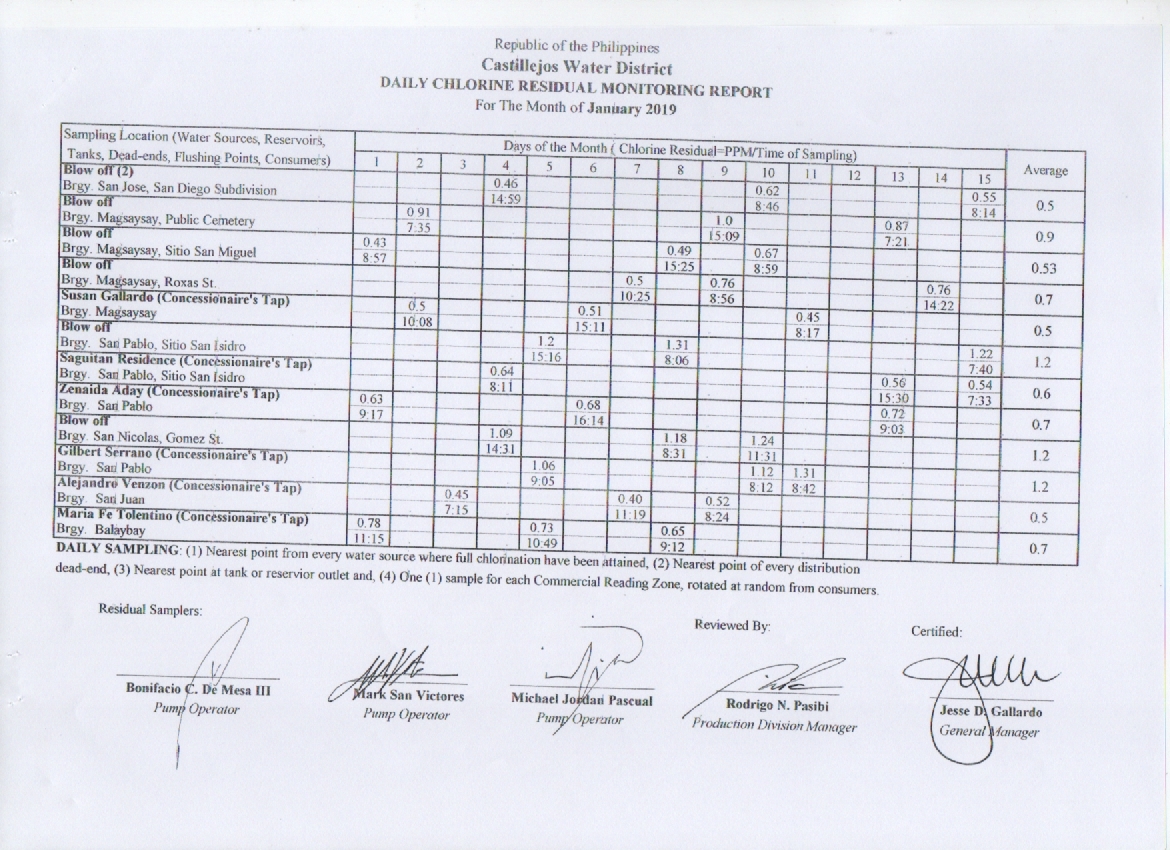 Republic of the Philippines
Castillejos Water District
DAILY CHLORINE RESIDUAL MONITORING REPORT
For The Month of January 2019
Sampling Location (Water Sources, Reservoirs, Tanks, Dead-ends, Flushing Points, Consumers)
Days of the Month ( Chlorine Residual=PPM/Time of Sampling)
Average
1 2 3 4 5 6 7 8 9 10 11 12 13 14 15
Blow off (2)
Brgy. San Jose, San Diego Subdivision
0.46 0.62 0.55
14:59 8:46 8:14
0.5
Blow off
Brgy. Magsaysay, Public Cemetery
0.91 1.0 0.87
7:35 15:09 7:21
0.9
Blow off
Brgy. Magsaysay, Sitio San Miguel
0.43 0.49 0.67
8:57 15:25 8:59
0.53
Blow off
Brgy. Magsaysay, Roxas St.
0.5 0.76 0.76
10:25 8:56 14:22
0.7
Susan Gallardo (Concessionaire's Tap)
Brgy. Magsaysay
0.5 0.51 0.45
10:08 15:11 8:17
0.5
Blow off
Brgy. San Pablo, Sitio San Isidro
1.2 1.31 1.22
15:16 8:06 7:40
1.2
Saguitan Residence (Concessionaire's Tap)
Brgy. San Pablo, Sitio San Isidro
0.64 0.56 0.54
8:11 15:30 7:33
0.6
Zenaida Aday (Concessionaire's Tap)
Brgy. San Pablo
0.63 0.68 0.72
9:17 16:14 9:03
0.7
Blow off
Brgy. San Nicolas, Gomez St.
1.09 1.18 1.24
14:31 8:31 11:31
1.2
Gilbert Serrano (Concessionaire's Tap)
Brgy. San Pablo
1.06 1.12 1.31
9:05 8:12 8:42
1.2
Alejandro Venzon (Concessionaire's Tap)
Brgy. San Juan
0.45 0.40 0.52
7:15 11:19 8:24
0.5
Maria Fe Tolentino (Concessionaire's Tap)
Brgy. Balaybay
0.78 0.73 0.65
11:15 10:49 9:12
0.7
DAILY SAMPLING: (1) Nearest point from every water source where full chlorination have been attained, (2) Nearest point of every distribution
dead-end, (3) Nearest point at tank or reservior outlet and, (4) One (1) sample for each Commercial Reading Zone, rotated at random from consumers.
Residual Samplers:
Reviewed By:
Certified:
Bonifacio C. De Mesa III
Pump Operator
Mark San Victores
Pump Operator
Michael Jordan Pascual
Pump Operator
Rodrigo N. Pasibi
Production Division Manager
Jesse D. Gallardo
General Manager